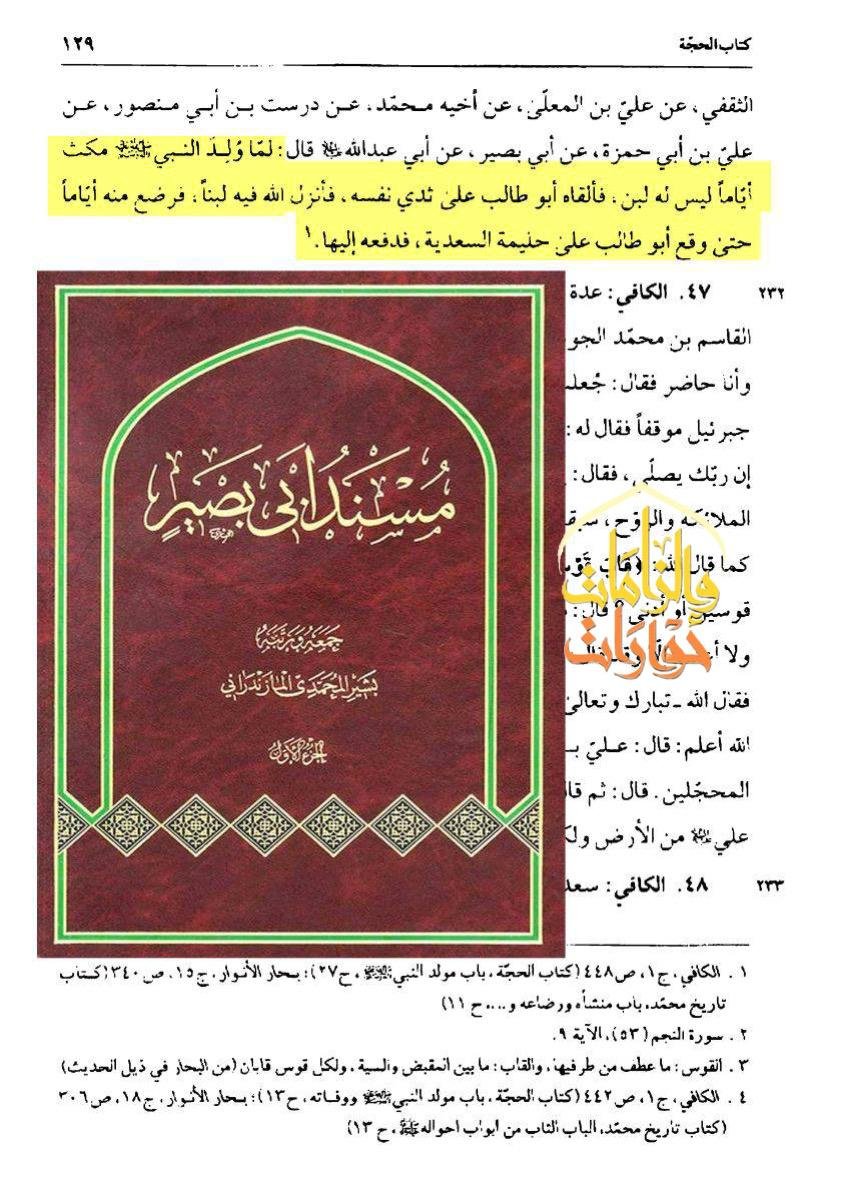 كتاب الحجّة
١٢٩
الثقفي، عن عليّ بن المعلّى، عن أخيه محمّد، عن درست بن أبي منصور، عن
عليّ بن أبي حمزة، عن أبي بصير، عن أبي عبدالله قال: لمّا وُلِدَ النبي ﷺ مكث
أيّاماً ليس له لبن، فألقاه أبو طالب على ثدي نفسه، فأنزل الله فيه لبناً، فرضع منه أيّاماً
حتى وقع أبو طالب على حليمة السعدية، فدفعه إليها.١
٢٣٢ ٤٧. الكافي: عدة
القاسم بن محمّد الجو
وأنا حاضر فقال: جُعلـ
جبرئيل موقفاً فقال له:
إن ربّك يصلّي، فقال:
الملائكة والرّوح، سبقـ
كما قال الله: (قاب قوس
قوسين أو أدنى؟ قال:
ولا أ
فقال الله ـ تبارك وتعالى
الله أعلم: قال: عليّ بـ
المحجّلين. قال: ثم قال
علي من الأرض ولكـ
٢٣٣ ٤٨. الكافي: سعد
مُسْنَدُ أَبِي بَصِيرٍ
جمعه ورتبه
بشير المحمدي المازندراني
الجزء الأول
حوارات
والزامات
١. الكافي، ج١، ص٤٤٨ (كتاب الحجّة، باب مولد النبي ﷺ، ح٢٧)؛ بحار الأنوار، ج١٥، ص٣٤٠ (كتاب
تاريخ محمّد، باب منشأه ورضاعه و...، ح ١١)
٢. سورة النجم (٥٣)، الآية ٩.
٣. القوس: ما عطف من طرفيها، والقاب: ما بين المقبض والسية، ولكل قوس قابان (من البحار في ذيل الحديث)
٤. الكافي، ج١، ص٤٤٢ (كتاب الحجّة، باب مولد النبي ﷺ ووفاته، ح١٣)؛ بحار الأنوار، ج١٨، ص٣٠٦
(كتاب تاريخ محمّد، الباب الثاب من ابواب احواله ﷺ، ح ١٣)